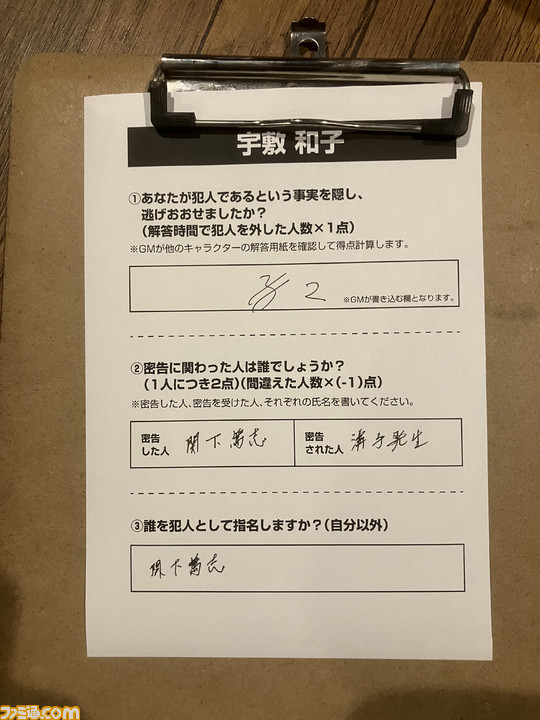 宇敷 和子
①あなたが犯人であるという事実を隠し、
逃げおおせましたか？
（解答時間で犯人を外した人数×1点）
※GMが他のキャラクターの解答用紙を確認して得点計算します。
2
※GMが書き込む欄となります。
②密告に関わった人は誰でしょうか？
（1人につき2点）（間違えた人数×(-1)点）
※密告した人、密告を受けた人、それぞれの氏名を書いてください。
密告
した人
関下篤志
密告
された人
③誰を犯人として指名しますか？（自分以外）
関下篤志
ファミ通.com